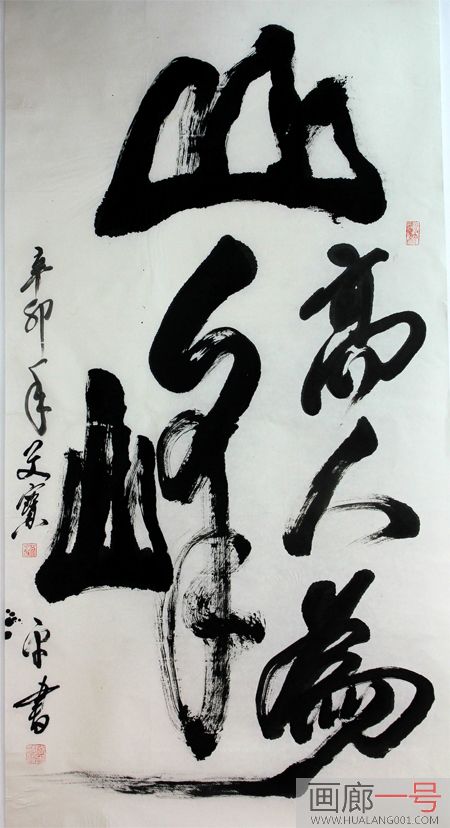 山
高人為
峰
辛卯年
書
画廊一号
WWW.HUALANG001.COM